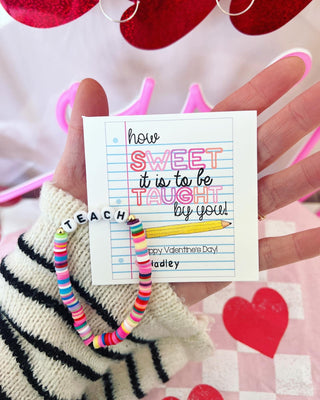 how
SWEET
it is to be
TAUGHT
by you!
Happy Valentine's Day!
Hadley
TEACH